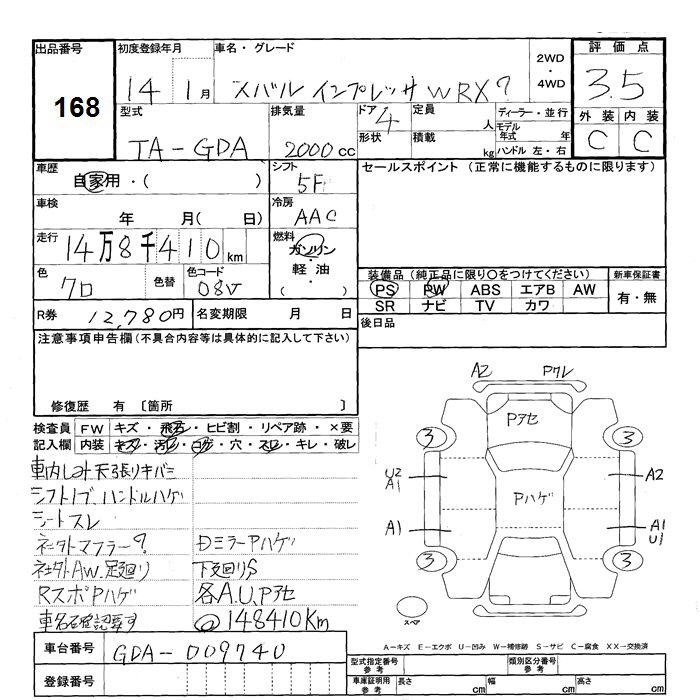 出品番号
168
初度登録年月
14 1月
車名・グレード
スバル インプレッサ WRX?
2WD
・
4WD
評価点
3.5
外装 内装
C C
型式
TA-GDA
排気量
2000cc
ドア 4
形状
定員 人
積載 kg
ディーラー・並行
モデル年式 年
ハンドル 左・右
車歴
自家用・( )
シフト
5F
セールスポイント (正常に機能するものに限ります)
車検
年 月( 日)
冷房
AAC
走行
14万8千410km
燃料
ガソリン
・
軽・油
( )
色
クロ
色替
色コード
08V
装備品 (純正品に限り○をつけてください)
新車保証書
PS PW ABS エアB AW
SR ナビ TV カワ
有・無
R券 12,780円
名変期限 月 日
後日品
注意事項申告欄(不具合内容等は具体的に記入して下さい)
修復歴 有 〔箇所 〕
検査員記入欄
FW キズ・飛石・ヒビ割・リペア跡・×要
内装 キズ・汚れ・コゲ・穴・スレ・キレ・破レ
車内しみ 天張りキバミ
シフトノブ、ハンドルハゲ
シートスレ
社外マフラー?
社外AW.足廻り
RスポPハゲ
車名確認要す
DミラーPハゲ
下廻りS
各A.U.Pアセ
@148410Km
A2 Pワレ
Pアセ
3 3
U2
A1
A2
Pハゲ
A1
A1
U1
3 3
スペア
A-キズ E-エクボ U-凹み W-補修跡 S-サビ C-腐食 XX-交換済
車台番号
GDA-009740
登録番号
型式指定番号
参考
類別区分番号
参考
車庫証明用
参考
長さ cm 幅 cm 高さ cm